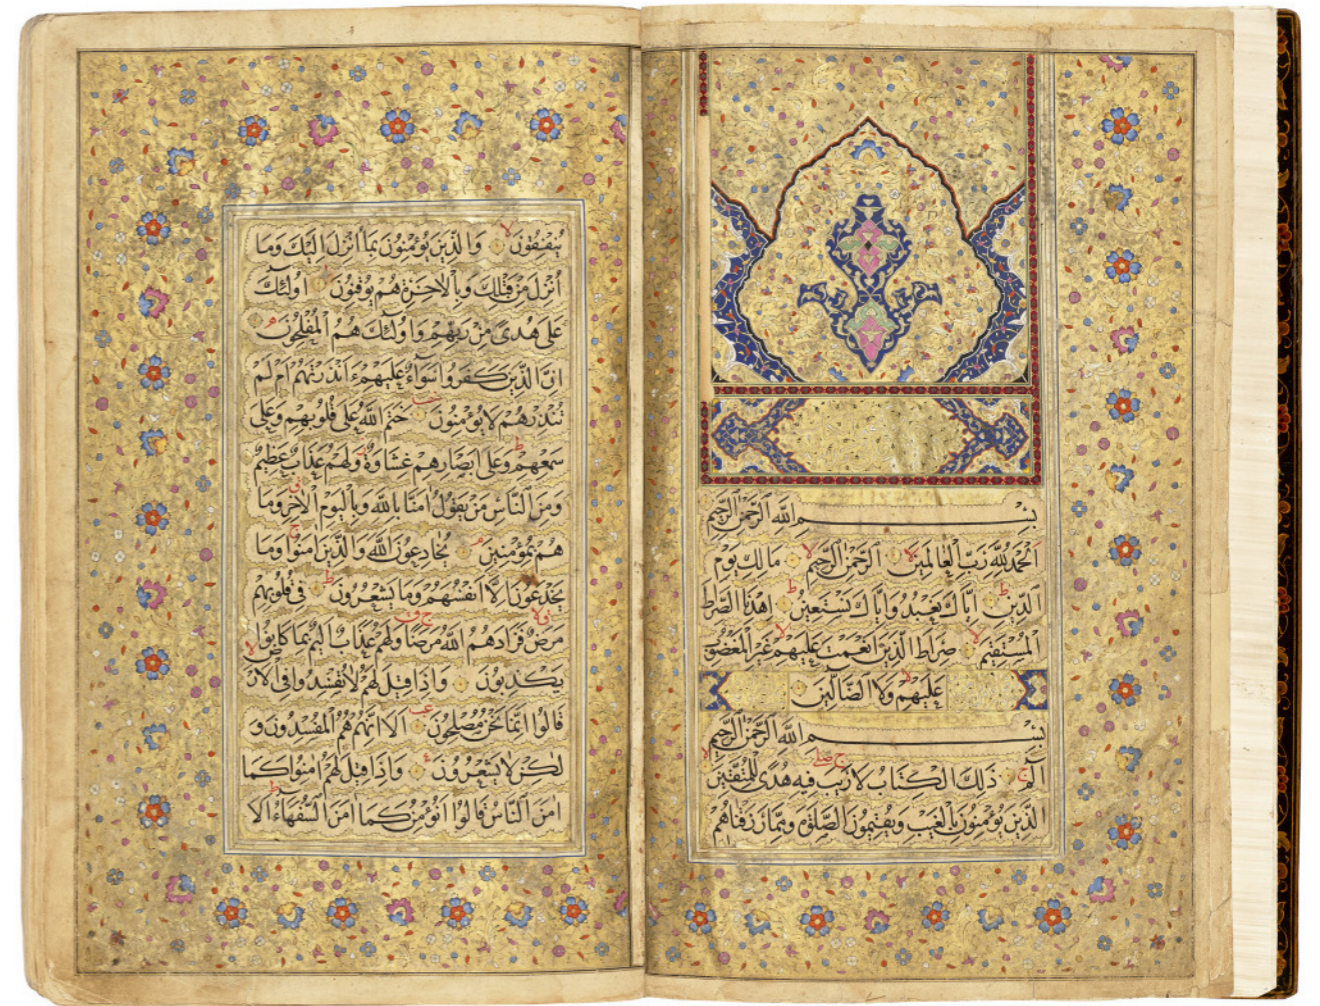 بِسْمِ اللَّهِ الرَّحْمٰنِ الرَّحِيمِ
اَلْحَمْدُ لِلَّهِ رَبِّ الْعَالَمِينَ لا الرَّحْمٰنِ الرَّحِيمِ لا مَالِكِ يَوْمِ
الدِّينِ ط اِيَّاكَ نَعْبُدُ وَاِيَّاكَ نَسْتَعِينُ ط اِهْدِنَا الصِّرَاطَ
الْمُسْتَقِيمَ لا صِرَاطَ الَّذِينَ اَنْعَمْتَ عَلَيْهِمْ لا غَيْرِ الْمَغْضُوبِ
عَلَيْهِمْ وَلَا الضَّالِّينَ
بِسْمِ اللَّهِ الرَّحْمٰنِ الرَّحِيمِ
الٓمٓ ج ذٰلِكَ الْكِتَابُ لَا رَيْبَ ج صلے فِيهِ هُدًى لِلْمُتَّقِينَ لا
الَّذِينَ يُؤْمِنُونَ بِالْغَيْبِ وَيُقِيمُونَ الصَّلٰوةَ وَمِمَّا رَزَقْنَاهُمْ
يُنْفِقُونَ لا وَالَّذِينَ يُؤْمِنُونَ بِمَا اُنْزِلَ اِلَيْكَ وَمَا
اُنْزِلَ مِنْ قَبْلِكَ وَبِالْاٰخِرَةِ هُمْ يُوقِنُونَ اُولٰٓئِكَ
عَلٰى هُدًى مِنْ رَبِّهِمْ وَاُولٰٓئِكَ هُمُ الْمُفْلِحُونَ
اِنَّ الَّذِينَ كَفَرُوا سَوَآءٌ عَلَيْهِمْ ءَاَنْذَرْتَهُمْ اَمْ لَمْ
تُنْذِرْهُمْ لَا يُؤْمِنُونَ خَتَمَ اللَّهُ عَلٰى قُلُوبِهِمْ وَعَلٰى
سَمْعِهِمْ ط وَعَلٰى اَبْصَارِهِمْ غِشَاوَةٌ وَلَهُمْ عَذَابٌ عَظِيمٌ
وَمِنَ النَّاسِ مَنْ يَقُولُ اٰمَنَّا بِاللَّهِ وَبِالْيَوْمِ الْاٰخِرِ وَمَا
هُمْ بِمُؤْمِنِينَ م يُخَادِعُونَ اللَّهَ وَالَّذِينَ اٰمَنُوا ج وَمَا
يَخْدَعُونَ اِلَّا اَنْفُسَهُمْ وَمَا يَشْعُرُونَ ط فِي قُلُوبِهِمْ
مَرَضٌ فَزَادَهُمُ اللَّهُ مَرَضًا وَلَهُمْ عَذَابٌ اَلِيمٌ بِمَا كَانُوا
يَكْذِبُونَ وَاِذَا قِيلَ لَهُمْ لَا تُفْسِدُوا فِي الْاَرْضِ لا
قَالُوا اِنَّمَا نَحْنُ مُصْلِحُونَ اَلَا اِنَّهُمْ هُمُ الْمُفْسِدُونَ وَ
لٰكِنْ لَا يَشْعُرُونَ وَاِذَا قِيلَ لَهُمْ اٰمِنُوا كَمَا
اٰمَنَ النَّاسُ قَالُوا اَنُؤْمِنُ كَمَا اٰمَنَ السُّفَهَآءُ ط اَلَا